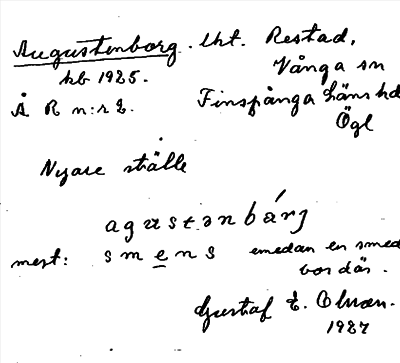 Augustenborg. lht. Restad,
hb 1925. Vånga sn
Å R n:r 2. Finspånga läns hd
Ögl
Nyare ställe
agustənbárj
mest: smens emedan en smed
bor där.
Gustaf E. Olson.
1927